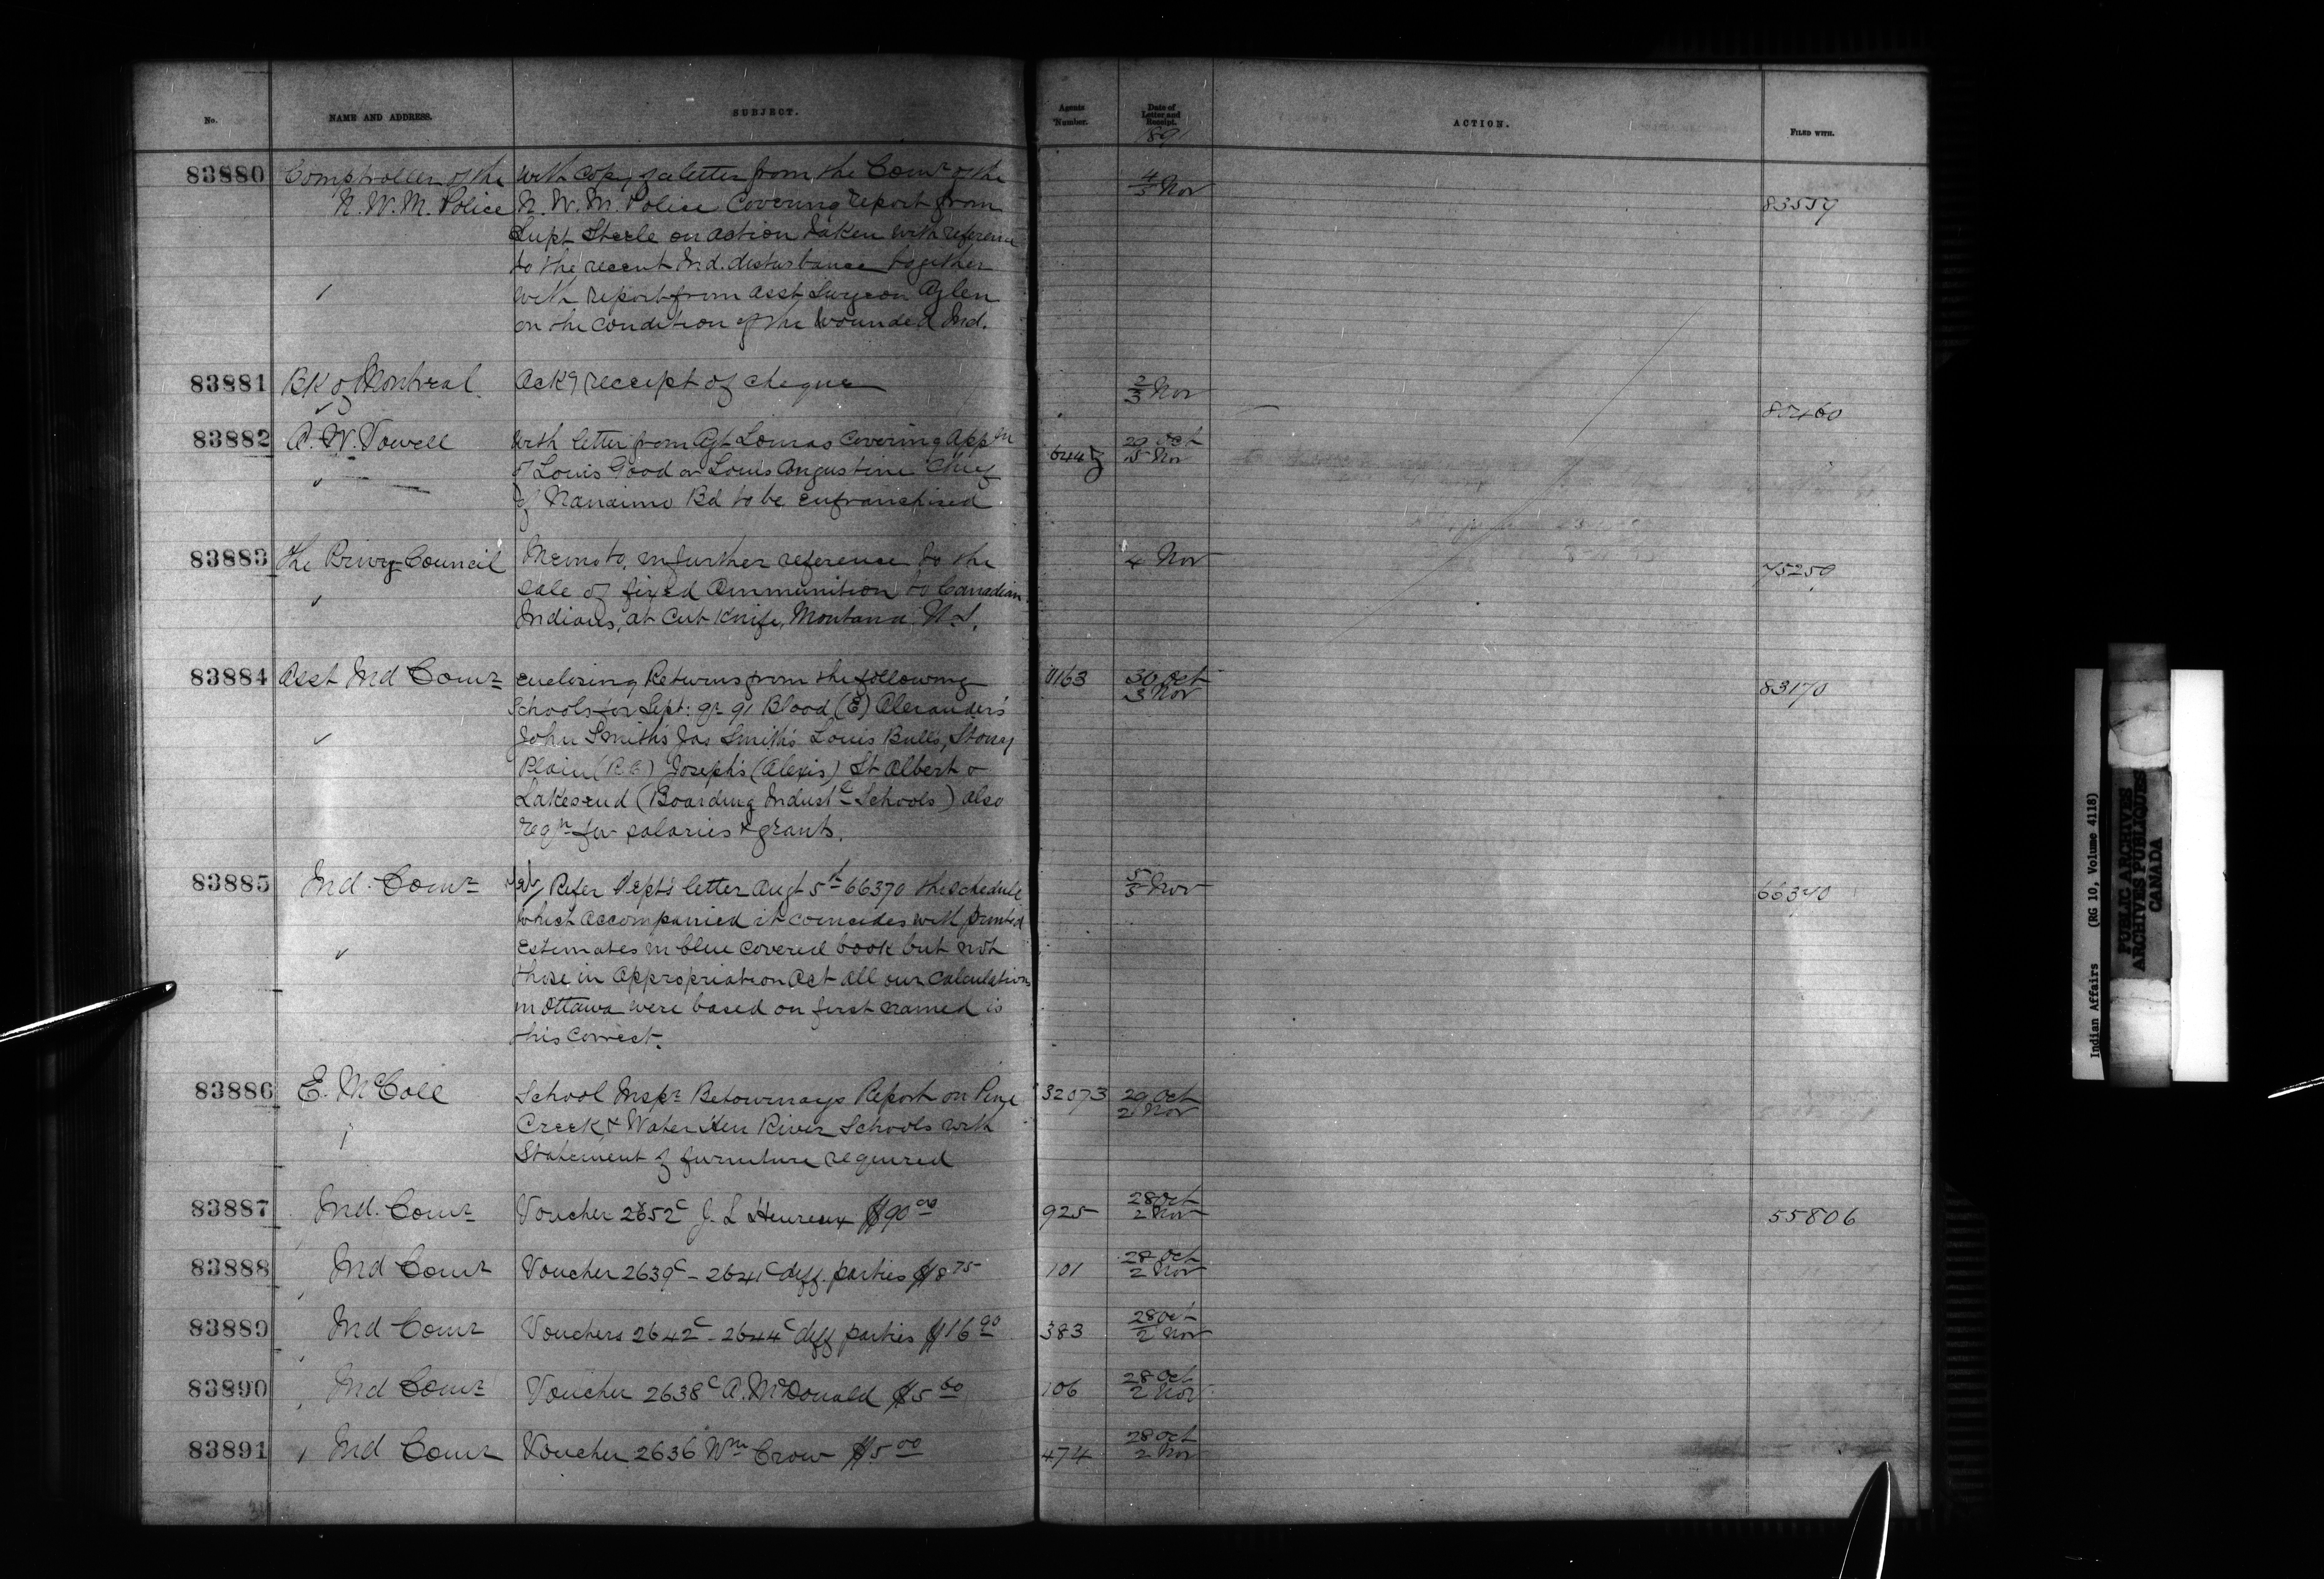 No. NAME AND ADDRESS. SUBJECT. Agents Number. Date of Letter and Receipt. ACTION. FILED WITH.
1891
83880 Comptroller of the With copy of a letter from the Comr of the 4/5 Nov
N. W. M. Police N. W. M. Police Covering report from 83559
Supt Steele on action taken with reference
to the recent Ind. disturbance together
with report from Asst Surgeon Aylen
on the condition of the wounded Ind.
83881 Bk of Montreal Ackg receipt of cheque 2/3 Nov
83882 A. W. Vowell With letter from Agt Lomas Covering Appn 29 Oct
of Louis Good or Louis Augustine Chief 5 Nov
of Nanaimo Bd to be enfranchised
83883 The Privy Council Memo to, in further reference to the 4 Nov
sale of fixed Ammunition to Canadian 75250
Indians, at Cut Knife, Montana U.S.
83884 Asst Ind Comr enclosing Returns from the following 1163 30 Oct
Schools for Sept: qr 91 Blood (E) Alexander's 3 Nov 83170
John Smith's Jas Smith's Louis Bull's, Stony
Plain (R.C.) Joseph's (Alexis) St Albert &
Lakesend (Boarding Industl Schools) also
reqn for salaries & grants.
83885 Ind. Comr Refer Dept's letter Augt 5th 66370 the schedule 5/5 Nov
which accompanied it coincides with printed 66370
Estimates in blue covered book but not
those in Appropriation Act all our calculations
in Ottawa were based on first named is
this correct.
83886 E. McColl School Inspr Betournays Report on Pine 32073 29 Oct
Creek & Water Hen River Schools with 2 Nov
Statement of furniture required
83887 Ind. Comr Voucher 2652c J. L Heureux $90 00 925 28 Oct
2 Nov 55806
83888 Ind Comr Voucher 2639c - 2641c diff. parties $8 75 101 28 Oct
2 Nov
83889 Ind Comr Vouchers 2642c - 2644c diff parties $16 90 383 28 Oct
2 Nov
83890 Ind Comr Voucher 2638c A. McDonald $5 60 106 28 Oct
2 Nov
83891 Ind Comr Voucher 2636 Wm Crow $5 00 474 28 Oct
2 Nov
Indian Affairs (RG 10, Volume 4118)
PUBLIC ARCHIVES
ARCHIVES PUBLIQUES
CANADA